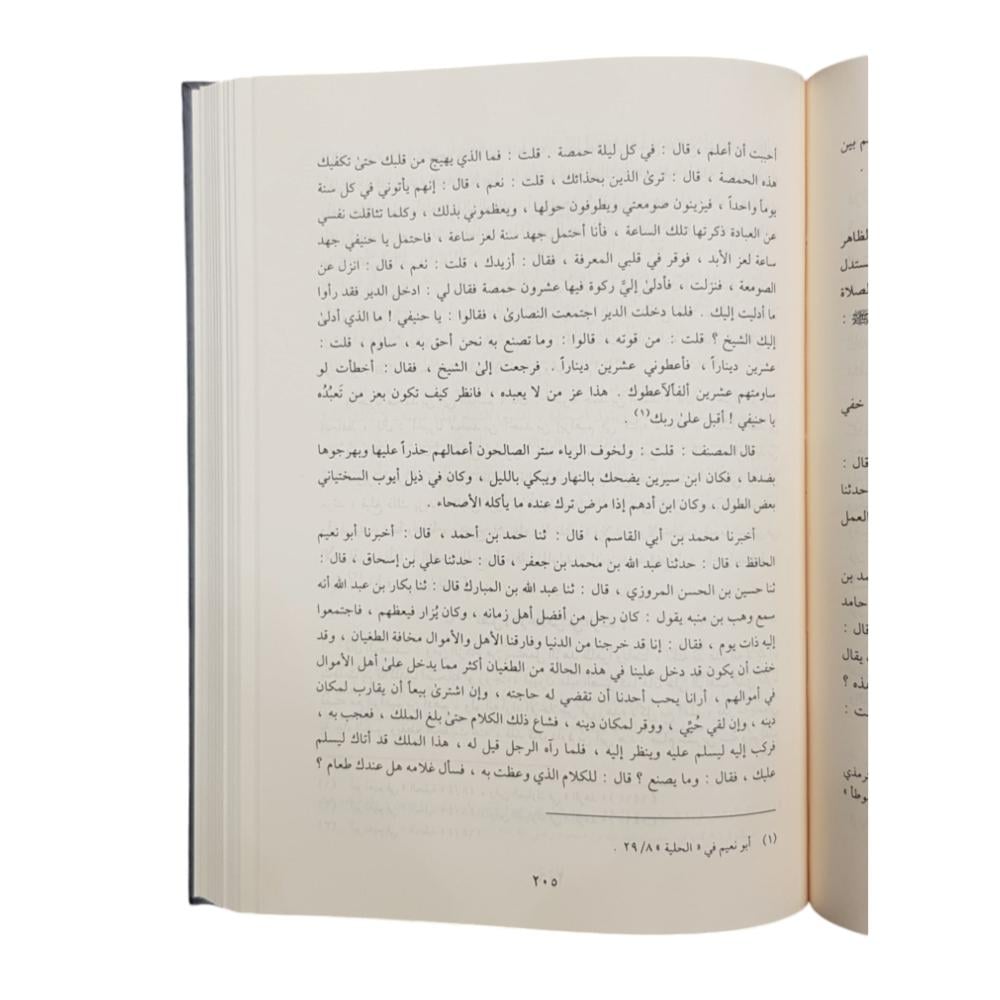 أحببت أن أعلم ، قال : في كل ليلة حمصة . قلت : فما الذي يهيج من قلبك حتىٰ تكفيك
هذه الحمصة ، قال : ترىٰ الذين بحذائك ، قلت : نعم ، قال : إنهم يأتوني في كل سنة
يوماً واحداً ، فيزينون صومعتي ويطوفون حولها ، ويعظموني بذلك ، وكلما تثاقلت نفسي
عن العبادة ذكرتها تلك الساعة ، فأنا أحتمل جهد سنة لعز ساعة ، فاحتمل يا حنيفي جهد
ساعة لعز الأبد ، فوقر في قلبي المعرفة ، فقال : أزيدك ، قلت : نعم ، قال : انزل عن
الصومعة ، فنزلت ، فأدلىٰ إليَّ ركوة فيها عشرون حمصة فقال لي : ادخل الدير فقد رأوا
ما أدليت إليك . فلما دخلت الدير اجتمعت النصارىٰ ، فقالوا : يا حنيفي ! ما الذي أدلىٰ
إليك الشيخ ؟ قلت : من قوته ، قالوا : وما تصنع به نحن أحق به ، ساوم ، قلت :
عشرين ديناراً ، فأعطوني عشرين ديناراً . فرجعت إلىٰ الشيخ ، فقال : أخطأت لو
ساومتهم عشرين ألفاًلأعطوك . هذا عز من لا يعبده ، فانظر كيف تكون بعز من تَعبُدُه
يا حنيفي ! أقبل علىٰ ربك(١) .
قال المصنف : قلت : ولخوف الرياء ستر الصالحون أعمالهم حذراً عليها وبهرجوها
بضدها ، فكان ابن سيرين يضحك بالنهار ويبكي بالليل ، وكان في ذيل أيوب السختياني
بعض الطول ، وكان ابن أدهم إذا مرض ترك عنده ما يأكله الأصحاء .
أخبرنا محمد بن أبي القاسم ، قال : ثنا حمد بن أحمد ، قال : أخبرنا أبو نعيم
الحافظ ، قال : حدثنا عبد الله بن محمد بن جعفر ، قال : حدثنا علي بن إسحاق ، قال :
ثنا حسين بن الحسن المروزي ، قال : ثنا عبد الله بن المبارك قال : ثنا بكار بن عبد الله أنه
سمع وهب بن منبه يقول : كان رجل من أفضل أهل زمانه ، وكان يُزار فيعظهم ، فاجتمعوا
إليه ذات يوم ، فقال : إنا قد خرجنا من الدنيا وفارقنا الأهل والأموال مخافة الطغيان ، وقد
خفت أن يكون قد دخل علينا في هذه الحالة من الطغيان أكثر مما يدخل علىٰ أهل الأموال
في أموالهم ، أرانا يحب أحدنا أن تقضي له حاجته ، وإن اشترىٰ بيعاً أن يقارب لمكان
دينه ، وإن لقي حُيِّي ، ووقر لمكان دينه ، فشاع ذلك الكلام حتىٰ بلغ الملك ، فعجب به ،
فركب إليه ليسلم عليه وينظر إليه ، فلما رآه الرجل قيل له ، هذا الملك قد أتاك ليسلم
عليك ، فقال : وما يصنع ؟ قال : للكلام الذي وعظت به ، فسأل غلامه هل عندك طعام ؟
(١) أبو نعيم في « الحلية » ٢٩/٨ .
٢٠٥
م بين
لظاهر
ستدل
لصلاة
ﷺ :
خفي
قال :
حدثنا
العمل
مد بن
حامد
قال :
يقال
هذه ؟
ت :
رمذي
وطأ »